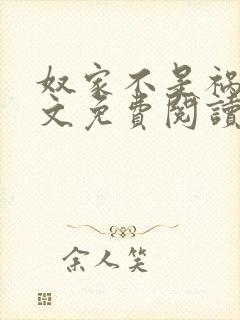 奴家不是祸
文免费阅读
余人笑